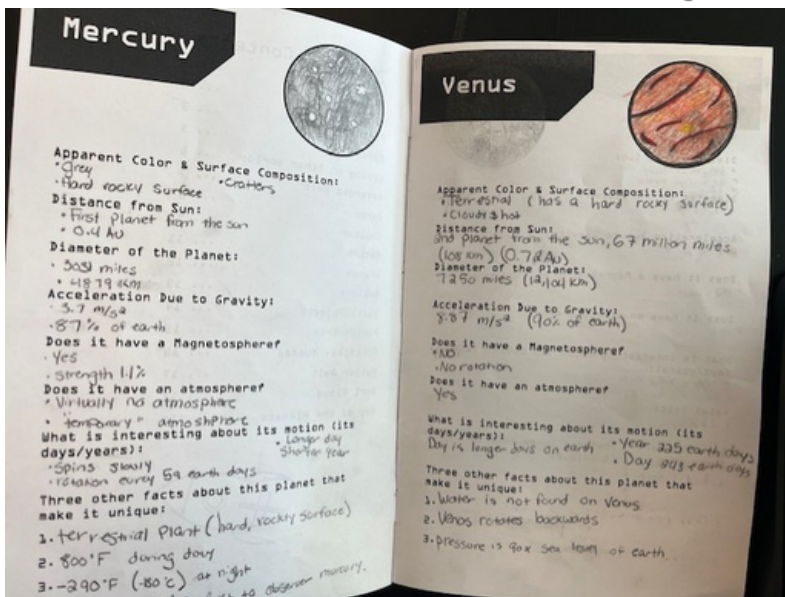 Mercury
Apparent Color & Surface Composition:
• Grey • Cratters
• Hard rocky surface
Distance from Sun:
• First planet from the sun
• 0.4 AU
Diameter of the Planet:
• 3031 miles
• 4879 km
Acceleration Due to Gravity:
• 3.7 m/s²
• 87% of earth
Does it have a Magnetosphere?
• Yes
• Strength 1.1%
Does it have an atmosphere?
• Virtually no atmosphere
• "temporary" atmoshphere
What is interesting about its motion (its
days/years):
• Longer day
Shorter year
• Spins slowly
• rotation every 59 earth days
Three other facts about this planet that
make it unique:
1. terrestrial Plant (hard, rocky surface)
2. 800°F during day
3. -290°F (-80°C) at night
to observe mercury.
Venus
Apparent Color & Surface Composition:
• Terrestrial (has a hard rocky surface)
• Cloudy & hot
Distance from Sun:
2nd planet from the sun, 67 million miles
(108 km) (0.72 AU)
Diameter of the Planet:
7250 miles (12,104 km)
Acceleration Due to Gravity:
8.87 m/s² (90% of earth)
Does it have a Magnetosphere?
• NO
• No rotation
Does it have an atmosphere?
Yes
What is interesting about its motion (its
days/years):
Day is longer days on earth
• Year 225 earth days
• Day 243 earth days
Three other facts about this planet that
make it unique:
1. Water is not found on Venus
2. Venos rotates backwards
3. pressure is 90x sea level of earth.